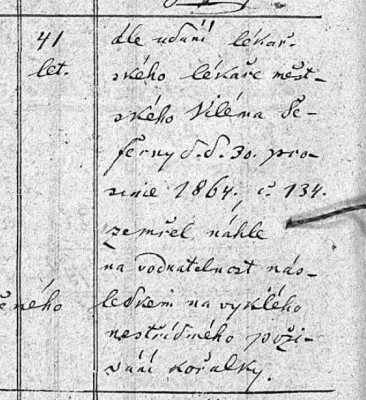 41 dle udání lékař-
let. ského lékaře měst-
ského Viléma Še-
ferny d. d. 30. pro-
since 1864, č. 134.
zemřel náhle
na vodnatelnost nás-
ného ledkem na vyklého
nestřídmého poží-
vání kořalky.